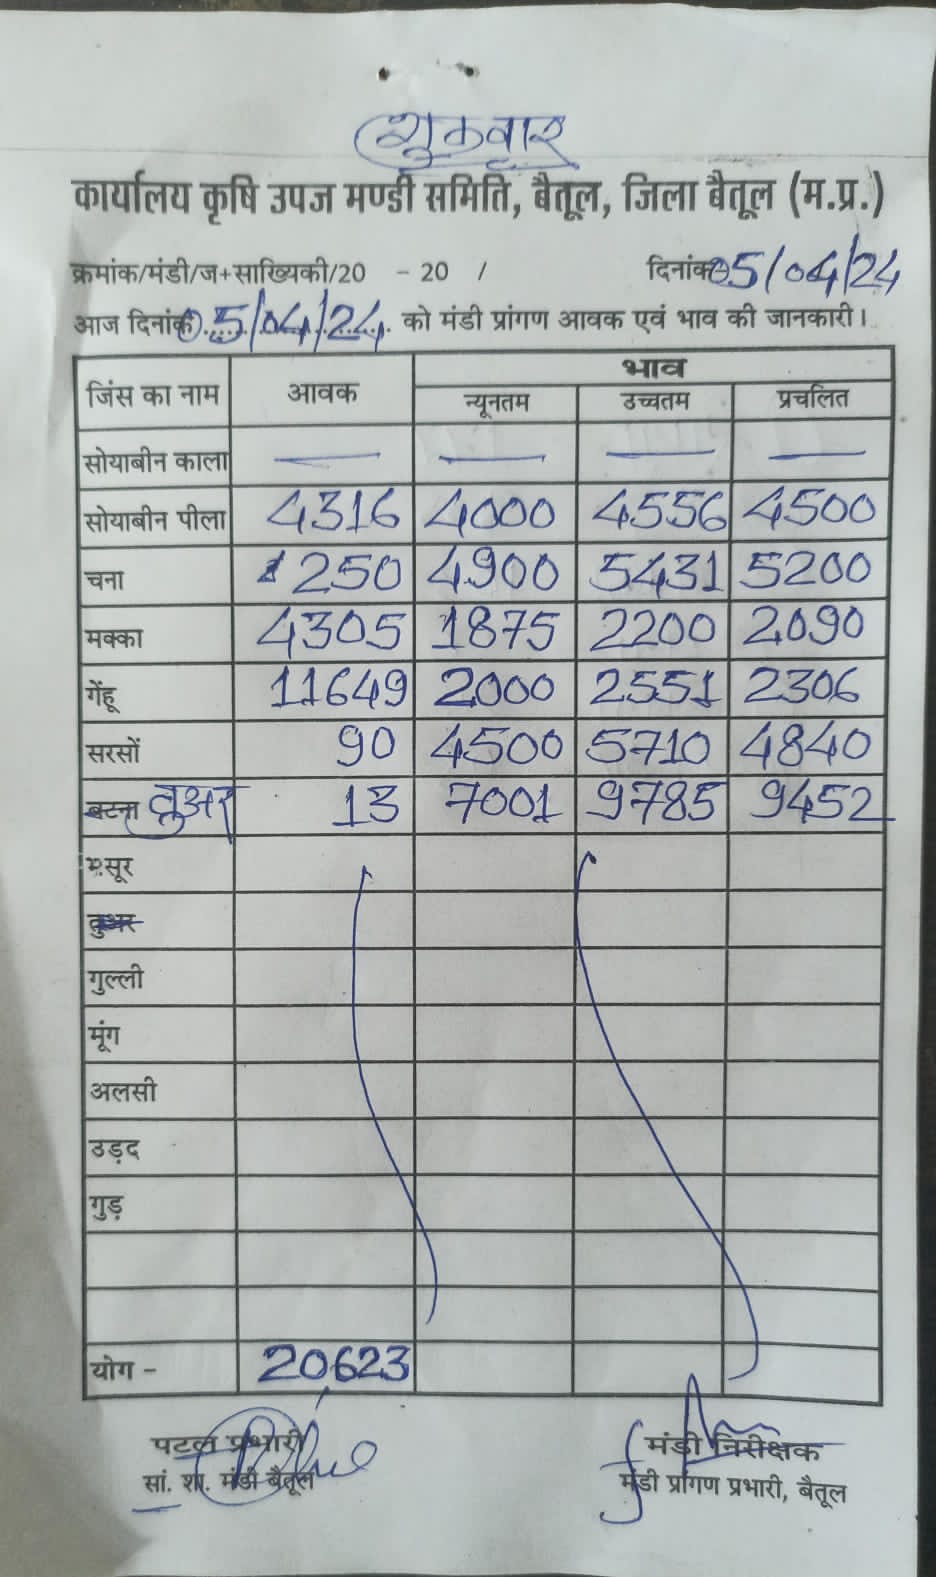 शुक्रवार
कार्यालय कृषि उपज मण्डी समिति, बैतूल, जिला बैतूल (म.प्र.)
क्रमांक/मंडी/ज+साख्यिकी/20 - 20 / दिनांक 05/04/24
आज दिनांक 05/04/24 को मंडी प्रांगण आवक एवं भाव की जानकारी।
जिंस का नाम आवक भाव
न्यूनतम उच्चतम प्रचलित
सोयाबीन काला — — — —
सोयाबीन पीला 4316 4000 4556 4500
चना 250 4900 5431 5200
मक्का 4305 1875 2200 2090
गेंहू 11649 2000 2551 2306
सरसों 90 4500 5710 4840
बटना तुअर 13 7001 9785 9452
मसूर
तुअर
गुल्ली
मूंग
अलसी
उड़द
गुड़
योग - 20623
पटल प्रभारी मंडी निरीक्षक
सां. शा. मंडी बैतूल मंडी प्रांगण प्रभारी, बैतूल